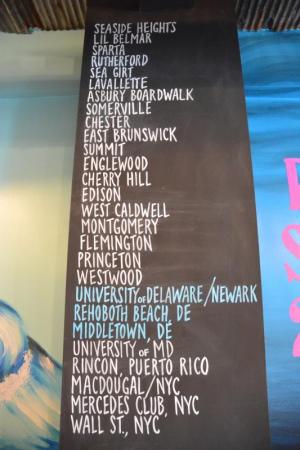 SEASIDE HEIGHTS
LIL BELMAR
SPARTA
RUTHERFORD
SEA GIRT
LAVALLETTE
ASBURY BOARDWALK
SOMERVILLE
CHESTER
EAST BRUNSWICK
SUMMIT
ENGLEWOOD
CHERRY HILL
EDISON
WEST CALDWELL
MONTGOMERY
FLEMINGTON
PRINCETON
WESTWOOD
UNIVERSITY OF DELAWARE/NEWARK
REHOBOTH BEACH, DE
MIDDLETOWN, DE
UNIVERSITY OF MD
RINCON, PUERTO RICO
MACDOUGAL/NYC
MERCEDES CLUB, NYC
WALL ST., NYC